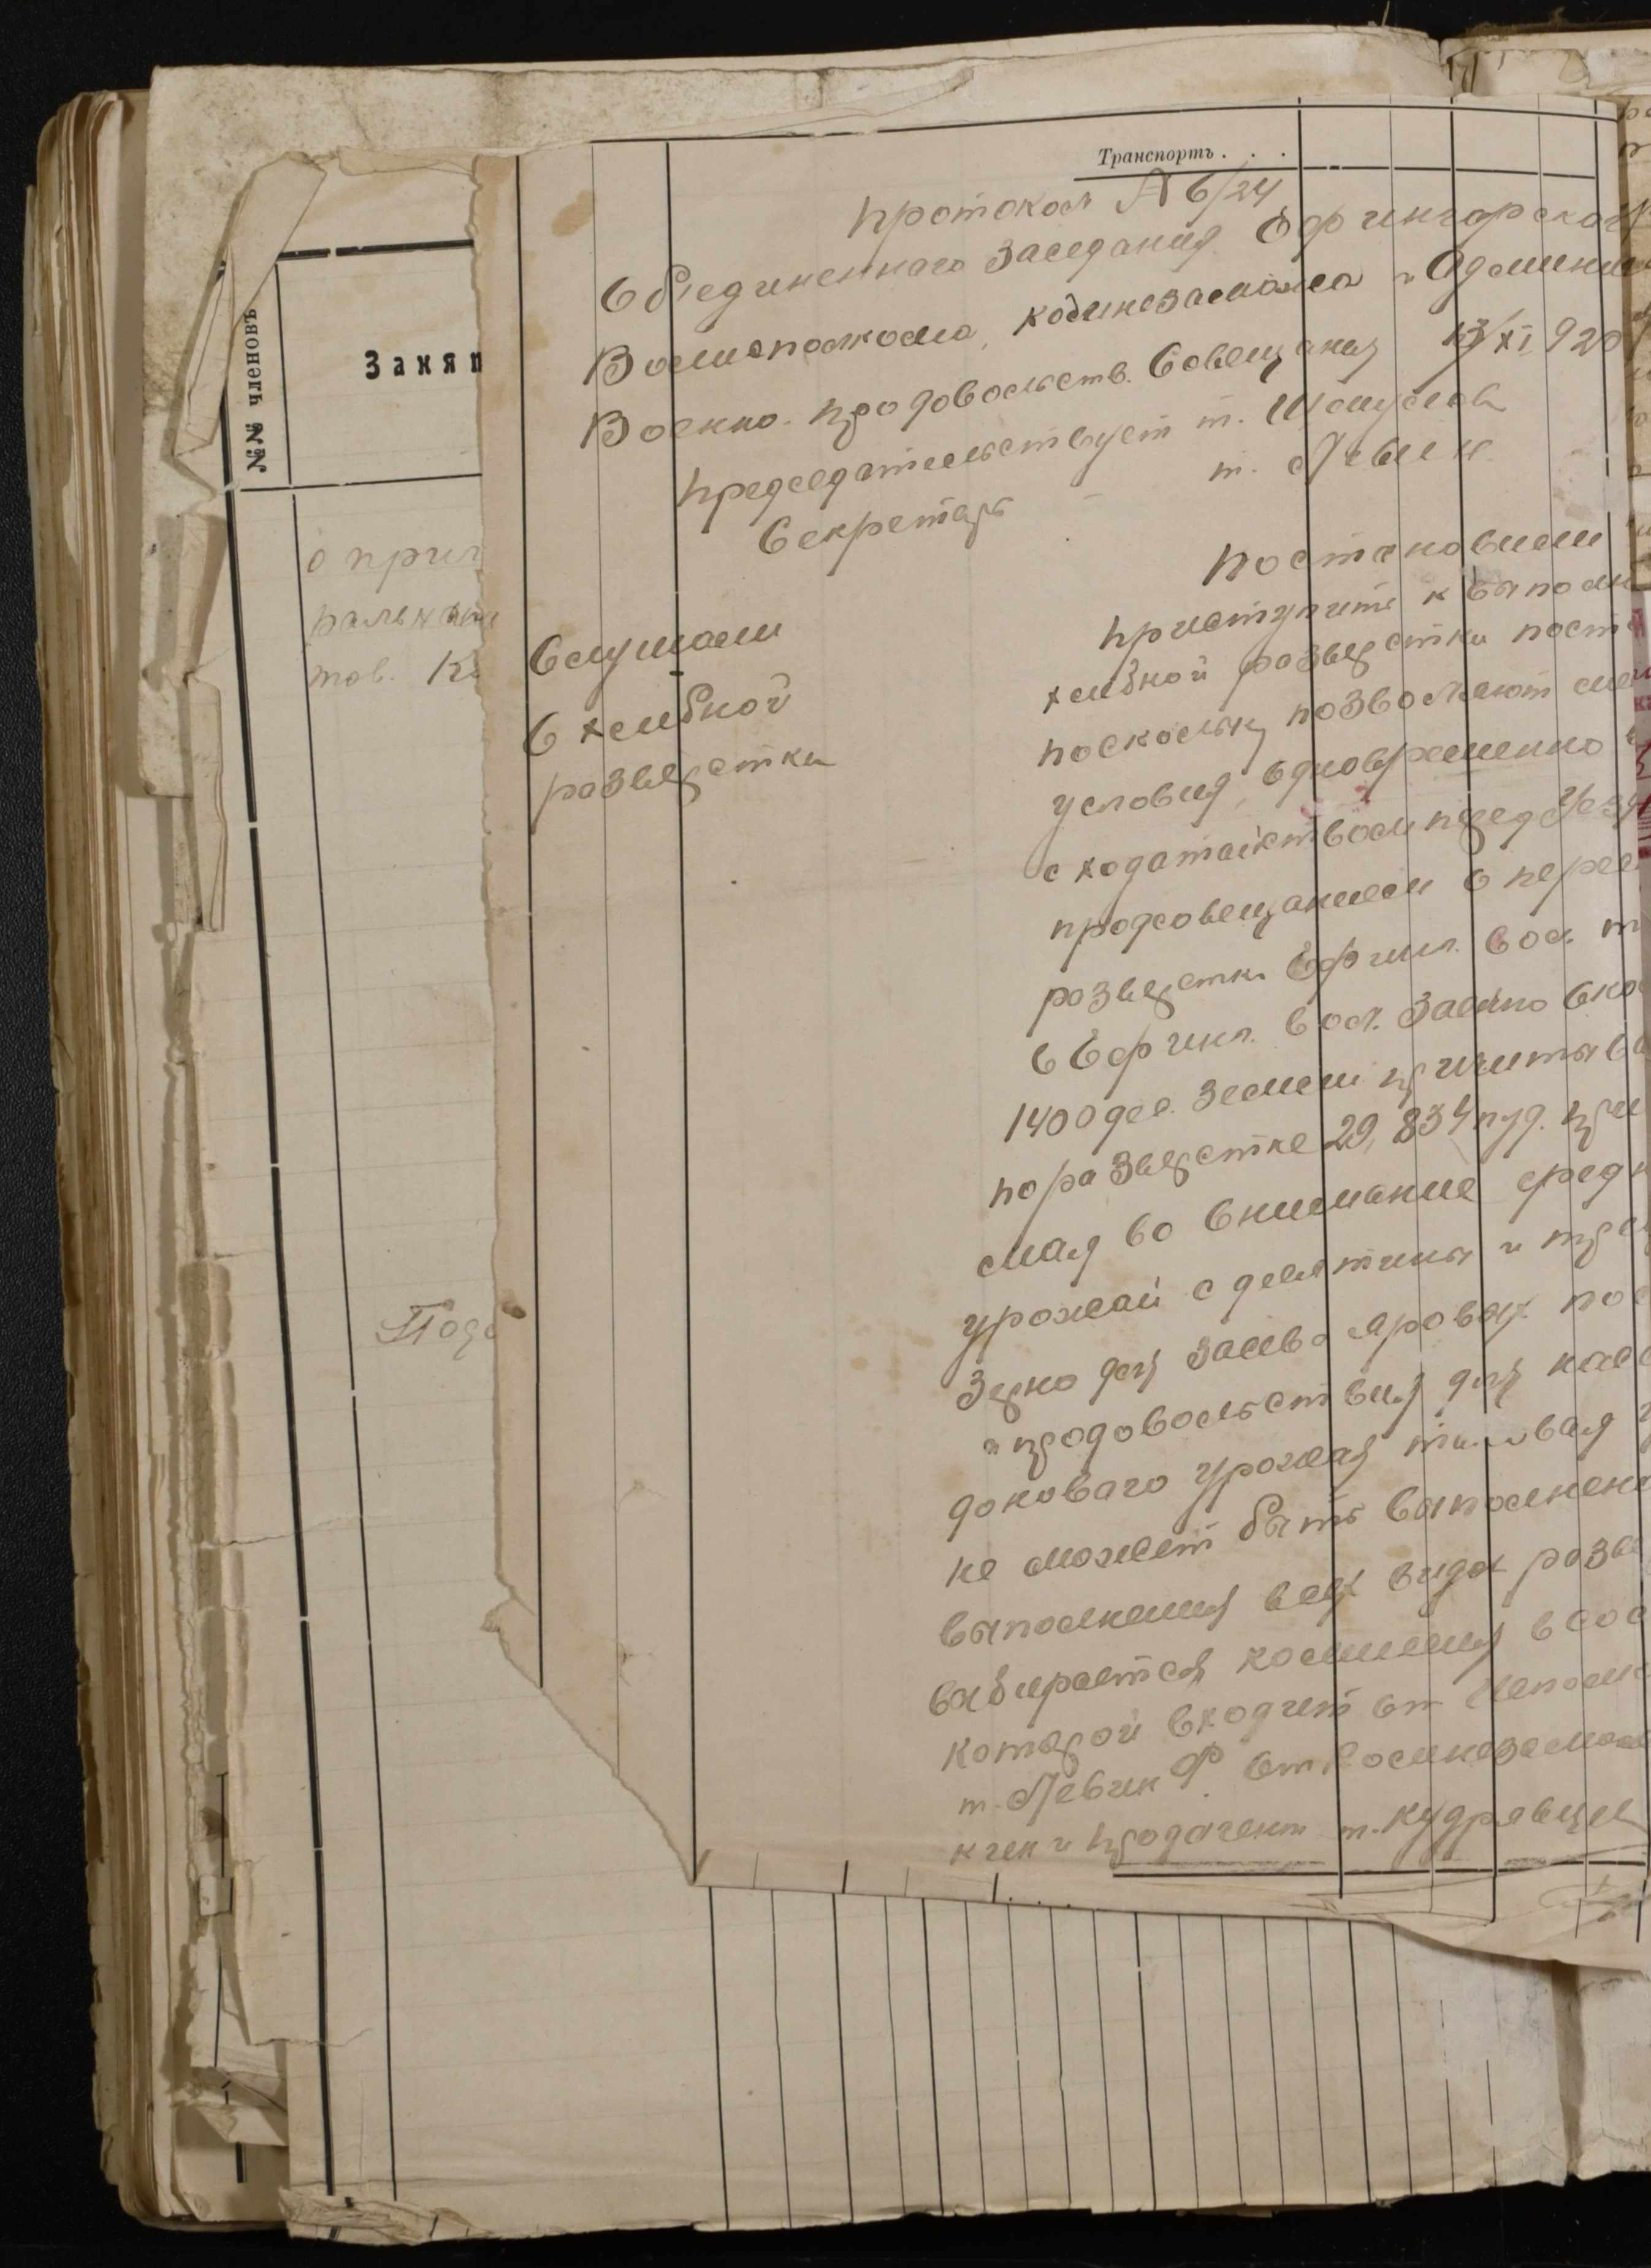 Транспортъ . . .
№№ членовъ
Заня
протокол № 6/24
Обьединеннаго заседания Ефингарскаг
Волисполкома, комнезаможа и Админи
Военно-продовольств. Совещания 13/XI 920
председательствует т. Шмуклов
Секретарь т. Левин
Слушали
О хлебной
разверстки
Постановили
приступить к выполн
хлебной разверстки пост
поскольку позволяют
условия, одновременно
с ходатайством перед Уезд
продсовещанием о пере
разверстки Ефинг. вол. т
в Ефинг. вол. Засеяно
1400 дес. земли причитыва
по разверстке 29,834 пуд. при
мая во внимание средн
урожай с десятины и
зерно для засева яровых пос
и продовольствия для нас
до новаго урожая таковая
не может быть выполнен
выполнения всех видов разве
выбирается комиссия в сос
которой входит от Исполк
т. Левин Ф. от Комнезамож
и продагент т. Кудрявцев
о при
ральным
тов. К
Подо